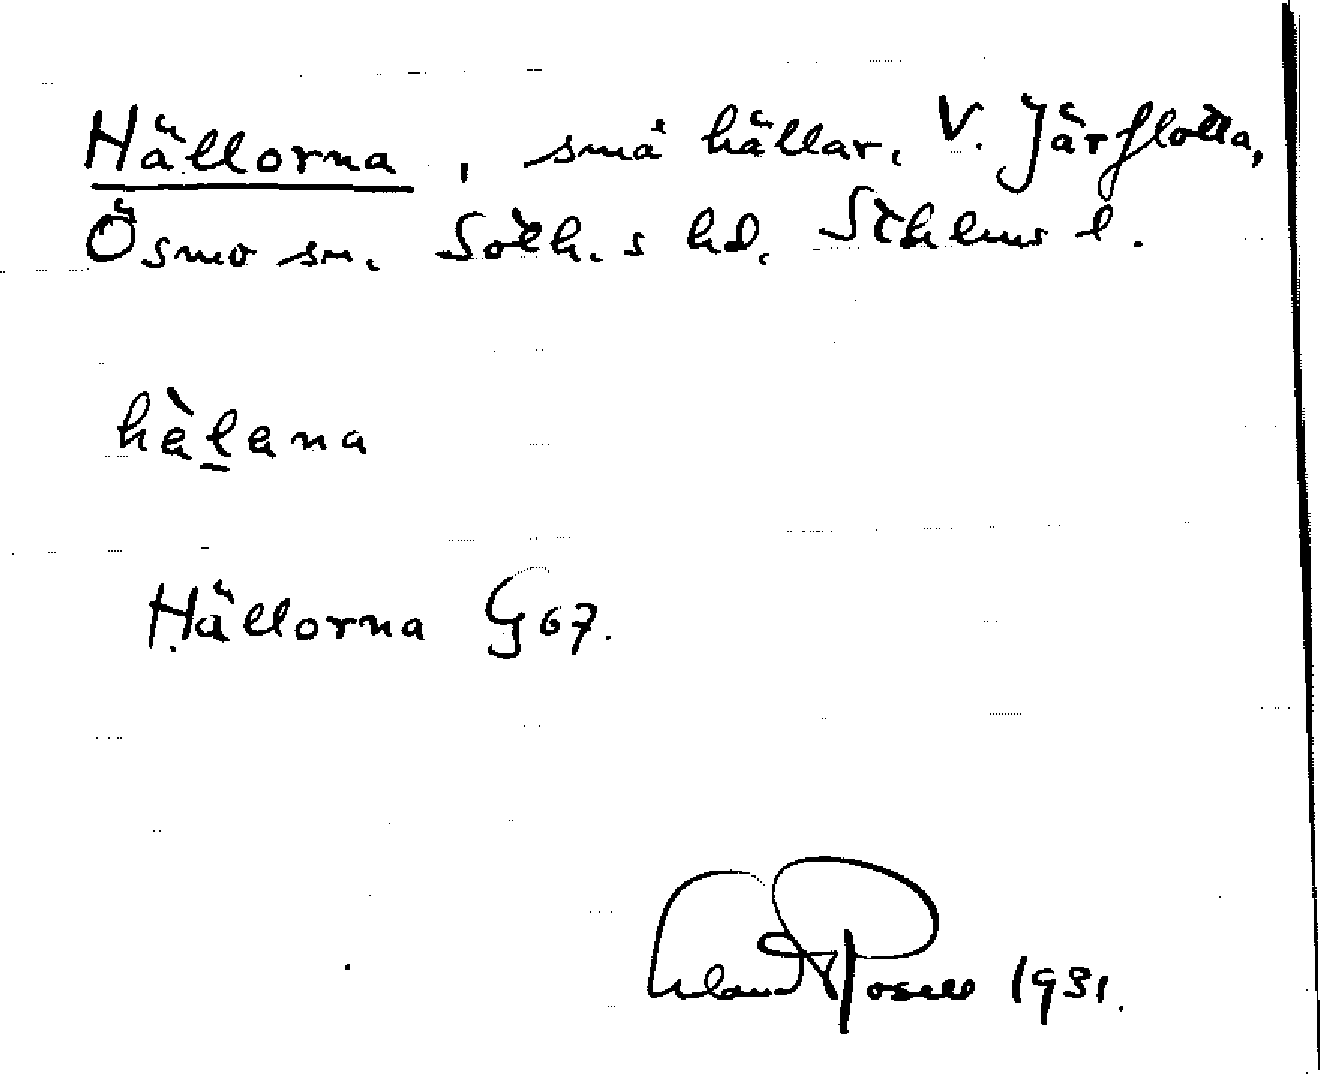 Hällorna, små hällar, V. Järflotta,
Ösmo sn. Soth. s hd. Sthlms l.
hälana
Hällorna G 67.
1931.